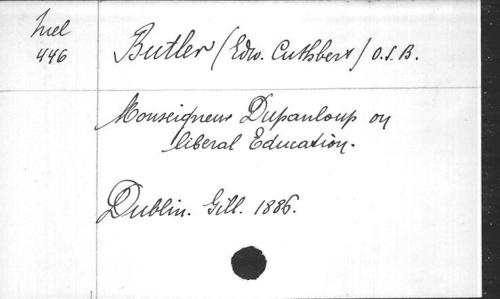 Mel
446
Butler (Edw. Cuthbert) O.S.B.
Monseigneur Dupanloup on
liberal Education.
Dublin. Gill. 1886.